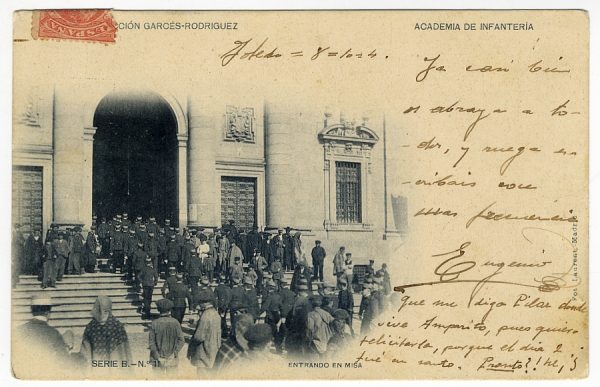 ESPAÑA
CCIÓN GARCÉS-RODRIGUEZ
ACADEMIA DE INFANTERÍA
Toledo = 8 = 10 = 4
Ya casi bien
os abraza a to-
dos, y ruega es-
cribais con
mas frecuencia
Eugenio
que me diga Pilar donde
vive Amparito, pues quiero
felicitarla, porque el dia 2
fué su santo. Pronto?! he, ¡
Fot. Laurent, Madrid
SERIE B.-N.º 11
ENTRANDO EN MISA